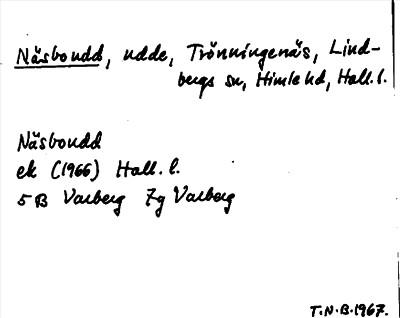 Näsboudd, udde, Trönningenäs, Lind-
bergs sn, Himle hd, Hall. l.
Näsboudd
ek (1966) Hall. l.
5B Varberg 7g Varberg
T.N.B.1967.